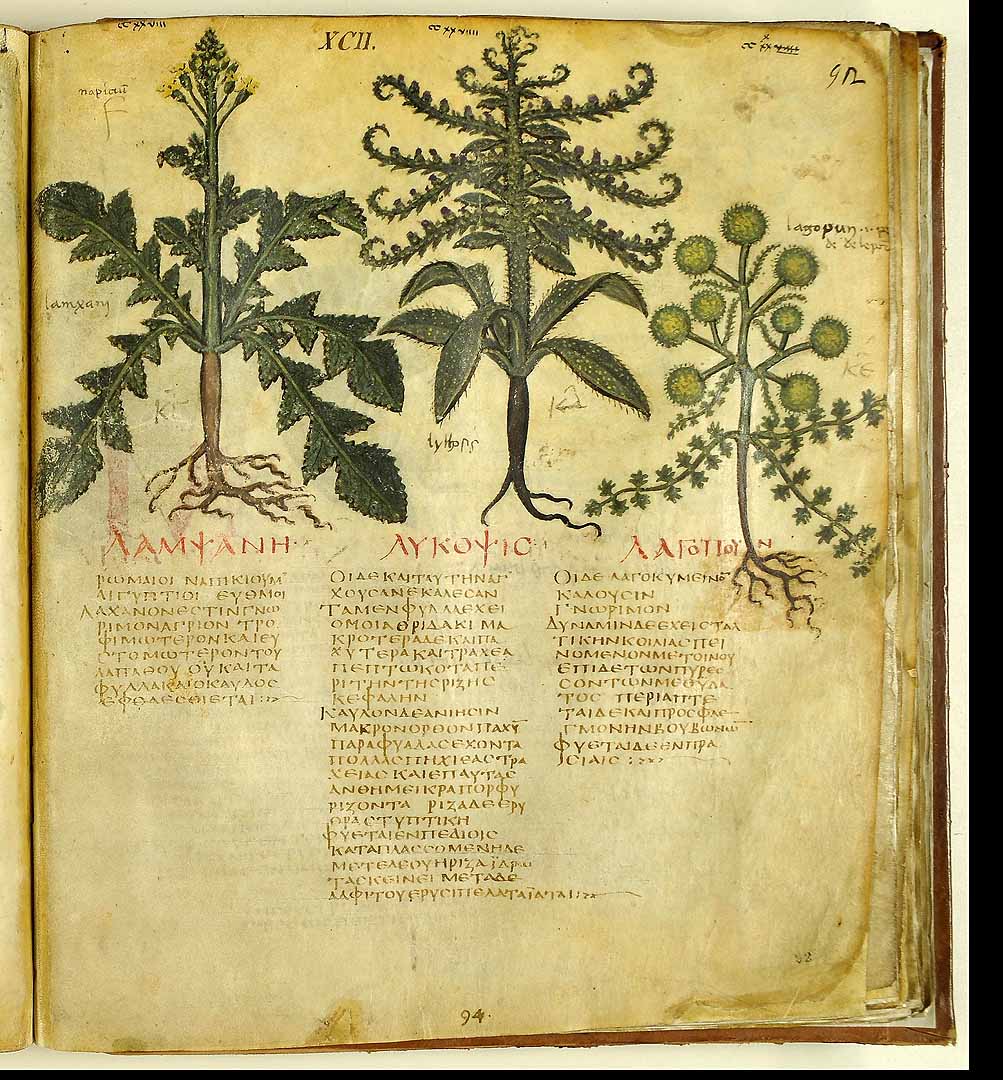 XCII.
92
napiciū
lamxani
ΛΑΜΨΑΝΗ
ΛΥΚΟΨΙC
ΛΑΓΟΠΟΥΝ
ΡΩΜΑΙΟΙ ΝΑΠΙΚΙΟΥΜ
ΑΙΓΥΠΤΙΟΙ ΕΥΘΜΟΙ
ΛΑΧΑΝΟΝΕCΤΙΝΓΝΩ
ΡΙΜΟΝΑΓΡΙΟΝ ΤΡΟ
ΦΙΜΩΤΕΡΟΝΚΑΙΕΥ
CΤΟΜΩΤΕΡΟΝΤΟΥ
ΛΑΠΑΘΟΥ ΟΥ ΚΑΙΤΑ
ΦΥΛΛΑΚΑΙΟΚΑΥΛΟC
ΕΦΘΑΕCΘΙΕΤΑΙ
ΟΙΔΕΚΑΙΤΑΥΤΗΝΑΓ
ΧΟΥCΑΝΕΚΑΛΕCΑΝ
ΤΑΜΕΝΦΥΛΛΑΕΧΕΙ
ΟΜΟΙΑΘΡΙΔΑΚΙ ΜΑ
ΚΡΟΤΕΡΑΔΕΚΑΙΠΑ
ΧΥΤΕΡΑΚΑΙΤΡΑΧΕΑ
ΠΕΠΤΩΚΟΤΑΠΕ
ΡΙΤΗΝΤΗCΡΙΖΗC
ΚΕΦΑΛΗΝ
ΚΑΥΛΟΝΔΕΑΝΙΗCΙΝ
ΜΑΚΡΟΝΟΡΘΟΝΠΑΧΥ
ΠΑΡΑΦΥΑΔΑCΕΧΟΝΤΑ
ΠΟΛΛΑCΠΗΧΙΕΑCΤΡΑ
ΧΕΙΑC ΚΑΙΕΠΑΥΤΑC
ΑΝΘΗΜΕΙΚΡΑΠΟΡΦΥ
ΡΙΖΟΝΤΑ ΡΙΖΑΔΕΕΡΥ
ΘΡΑCΤΥΠΤΙΚΗ
ΦΥΕΤΑΙΕΝΠΕΔΙΟΙC
ΚΑΤΑΠΛΑCCΟΜΕΝΗΔΕ
ΜΕΤΕΛΕΟΥΗΡΙΖΑ ΪΔΡΩ
ΤΑCΚΕΙΝΕΙ ΜΕΤΑΔΕ
ΑΛΦΙΤΟΥΕΡΥCΙΠΕΛΑΤΑΪΑΤΑΙ
ΟΙΔΕ ΛΑΓΟΚΥΜΕΙΝΟ
ΚΑΛΟΥCΙΝ
ΓΝΩΡΙΜΟΝ
ΔΥΝΑΜΙΝΔΕΕΧΕΙCΤΑΛ
ΤΙΚΗΝΚΟΙΛΙΑCΠΕΙ
ΝΟΜΕΝΟΝΜΕΤΟΙΝΟΥ
ΕΠΙΔΕΤΩΝΠΥΡΕC
CΟΝΤΩΝΜΕΘΥΔΑ
ΤΟC ΠΕΡΙΑΠΤΕ
ΤΑΙΔΕΚΑΙΠΡΟCΦΛΕ
ΓΜΟΝΗΝΒΟΥΒΩΝΩΝ
ΦΥΕΤΑΙΔΕΕΝΠΡΑ
CΙΑΙC
94